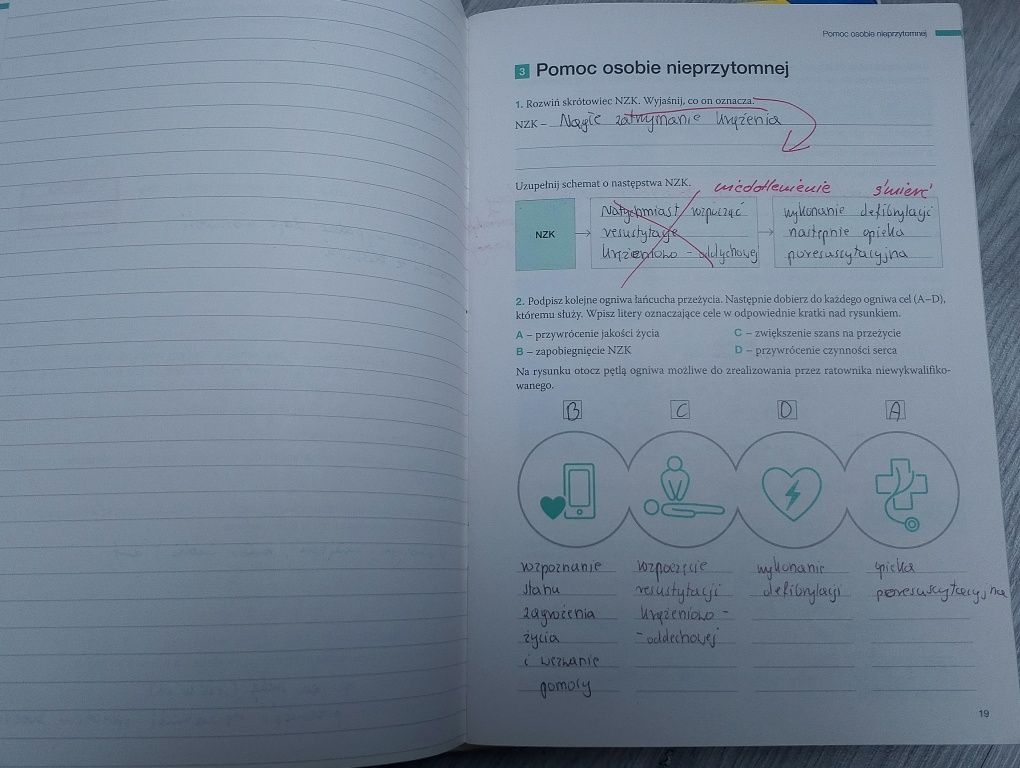 Pomoc osobie nieprzytomnej
3 Pomoc osobie nieprzytomnej
1. Rozwiń skrótowiec NZK. Wyjaśnij, co on oznacza.
NZK – Nagłe zatrymanie krążenia
Uzupełnij schemat o następstwa NZK.
niedotlenienie śmierć
NZK
Natychmiast rozpocząć
resustytacje
krążeniowo - oddychowej
wykonanie defibrylacji
następnie opieka
poresuscytacyjna
2. Podpisz kolejne ogniwa łańcucha przeżycia. Następnie dobierz do każdego ogniwa cel (A–D),
któremu służy. Wpisz litery oznaczające cele w odpowiednie kratki nad rysunkiem.
A – przywrócenie jakości życia
C – zwiększenie szans na przeżycie
B – zapobiegnięcie NZK
D – przywrócenie czynności serca
Na rysunku otocz pętlą ogniwa możliwe do zrealizowania przez ratownika niewykwalifiko-
wanego.
B C D A
rozpoznanie
stanu
zagrożenia
życia
i wezwanie
pomocy
rozpoczęcie
resustytacji
krążeniowo -
- oddechowej
wykonanie
defibrylacji
opieka
poresuscytacyjna
19